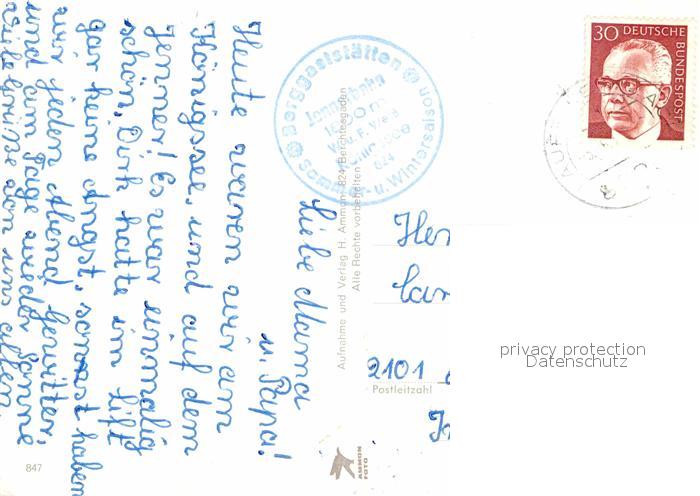 Liebe Mama
u. Papa!
Heute waren wir am
Königssee, und auf dem
Jenner! Es war einmalig
schön, Dirk hatte im Lift
gar keine Angst, sonst haben
wir jeden Abend Gewitter,
und am Tage wieder Sonne
Viele Grüße von uns allen.
Berggaststätten
Jennerbahn
Sommer- u. Wintersaison
Aufnahme und Verlag H. Ammon 824 Berchtesgaden
Alle Rechte vorbehalten
30 DEUTSCHE BUNDESPOST
2101
Postleitzahl
privacy protection
Datenschutz
AMMON
FOTO
847